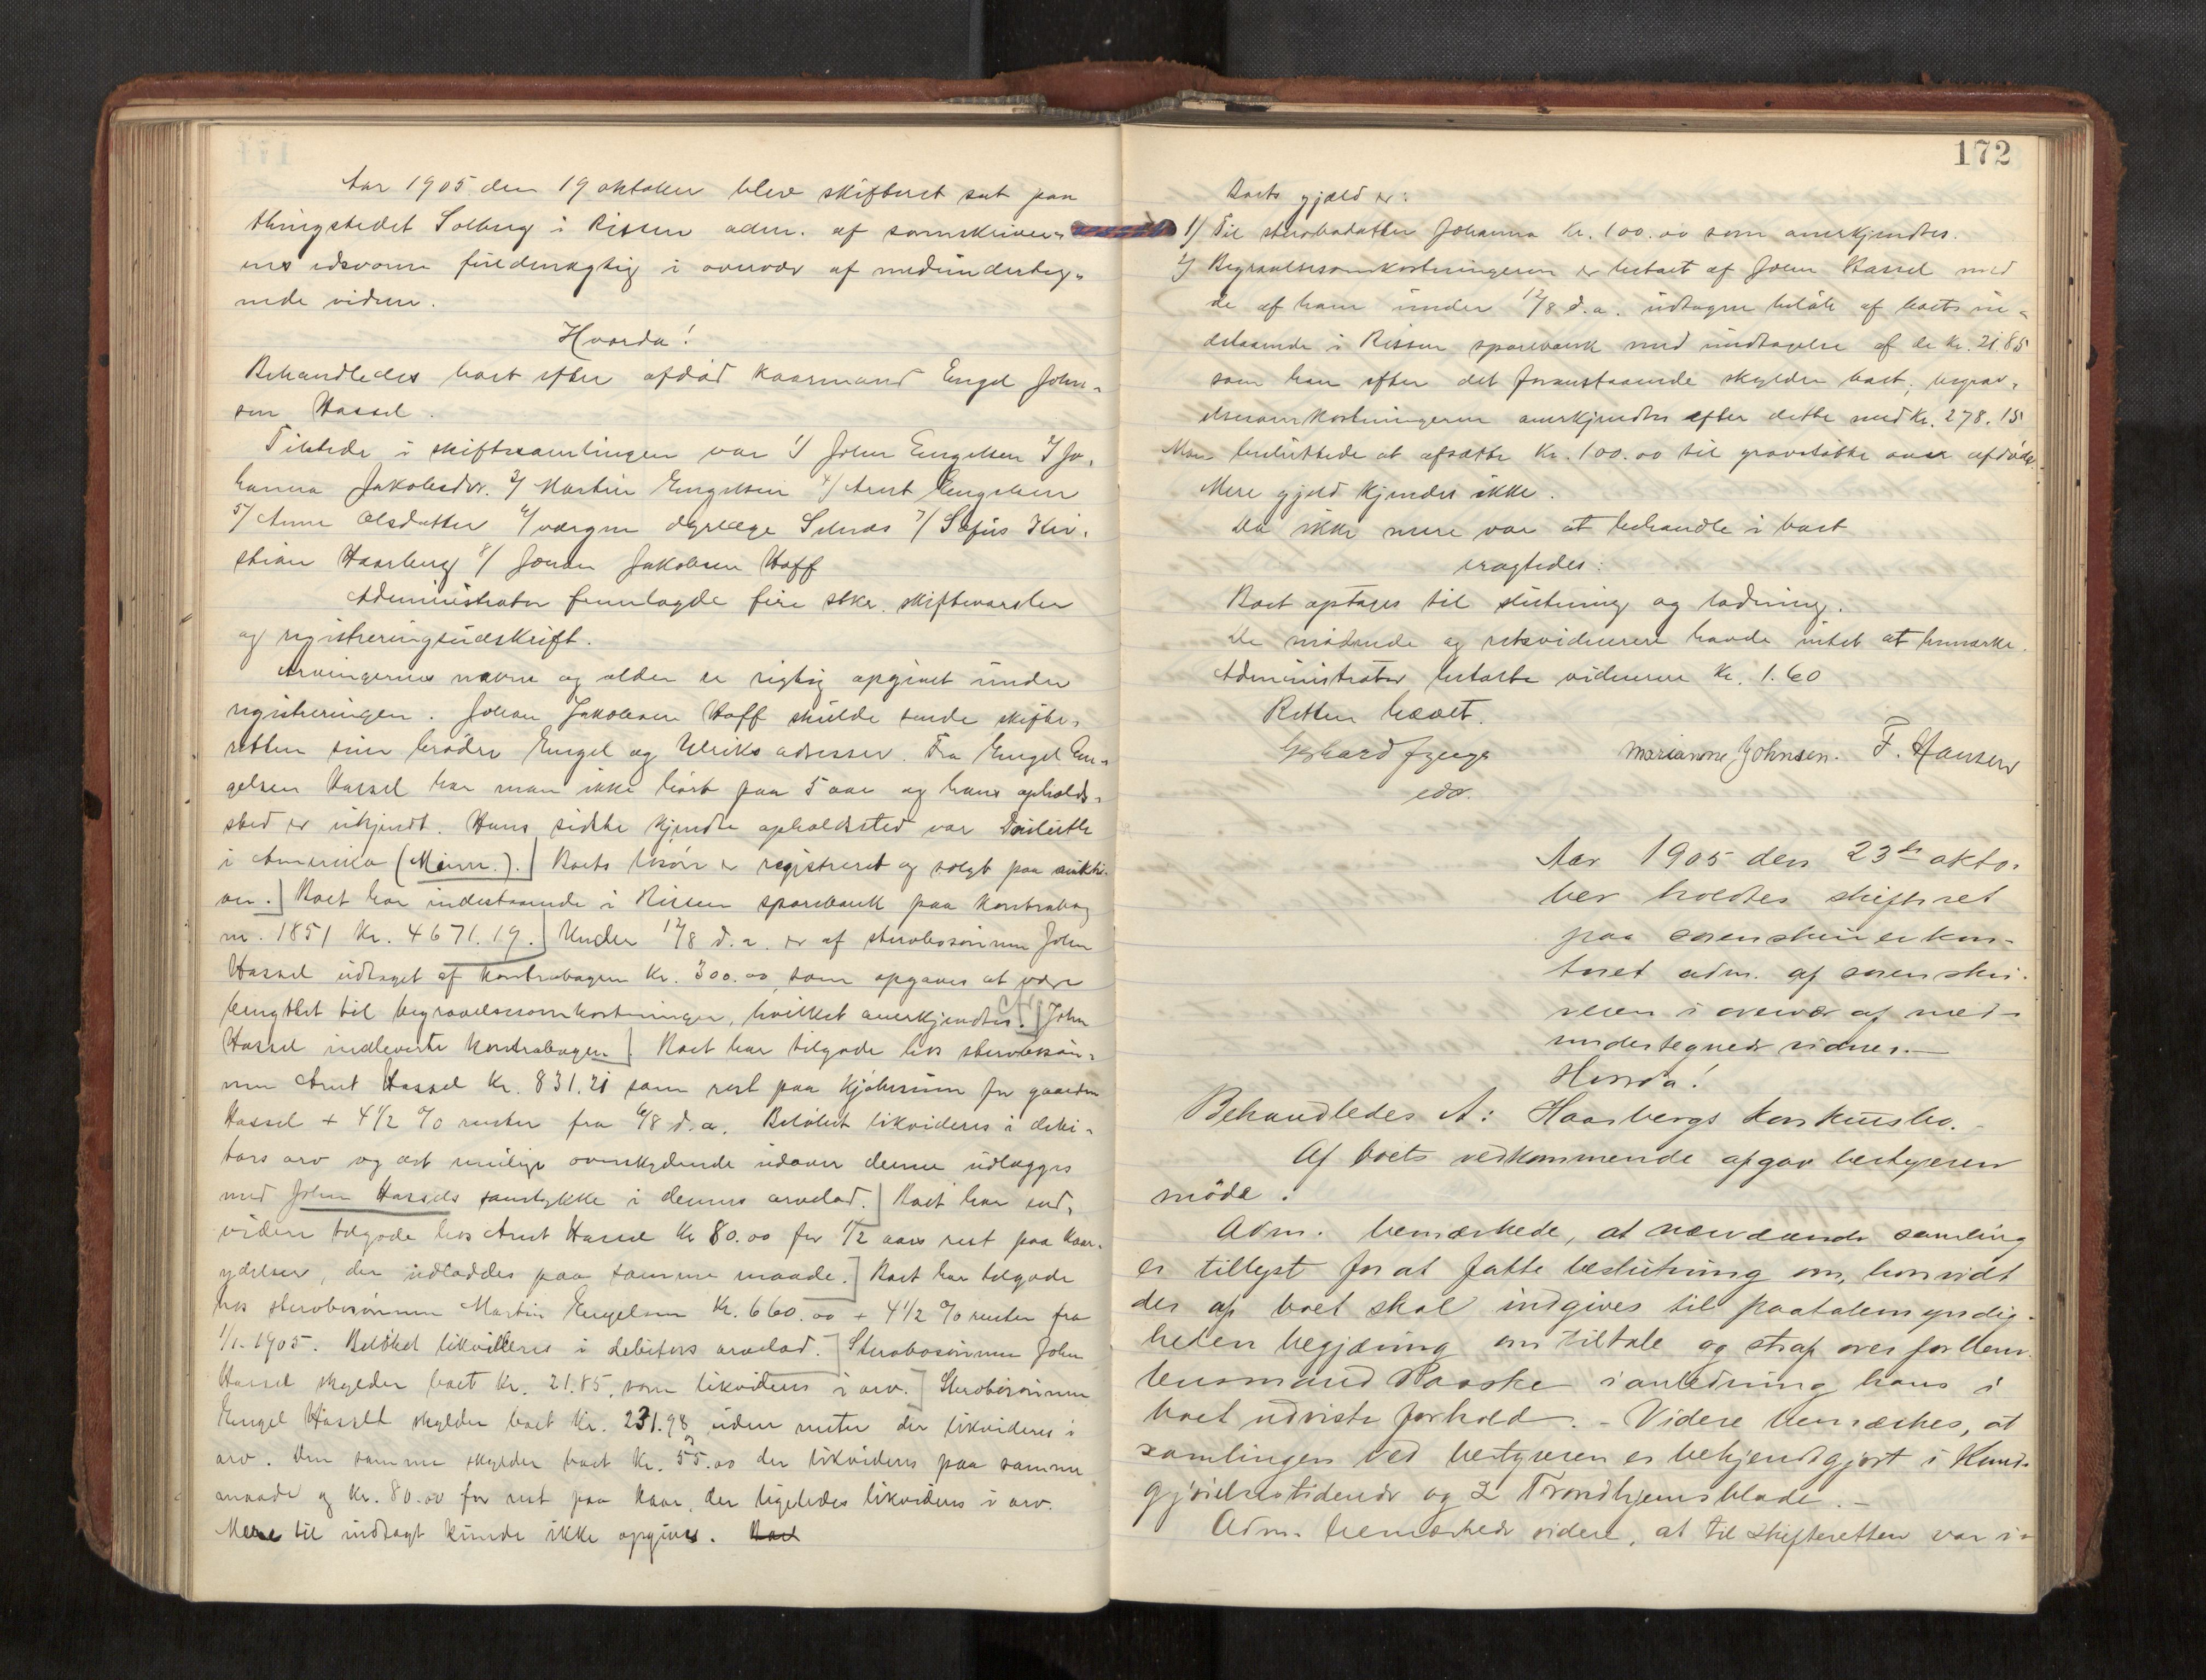 Aar 1905 den 19 oktober blev skifteret sat paa
thingstedet Solberg i Rissen adm. af sorenskrive-
rens edsvorne fuldmægtig i overvær af medunderteg-
nede vidner.
Hvorda!
Behandledes boet efter afdød kaarmand Engel John-
sen Hassel.
Tilstede i skiftesamlingen var 1/ John Engelsen 2/ Jo-
hanna Jakobsdtr. 3/ Martin Engelsen 4/ Arnt Engelsen
5/ Anne Olsdatter 6/ værgen dyrlæge Selnæs 7/ Sefus Kri-
stian Haarberg 8/ Johan Jakobsen Hoff
Administrator fremlagde fire stkr. skiftevarsler
og registreringsudskrift.
Arvingernes navne og alder er rigtig opgivet under
registreringen. Johan Jakobsen Hoff skulde sende skifte-
retten sine brødre Engel og Ulriks adresser. Fra Engel En-
gelsen Hassel har man ikke hørt paa 5 aar og hans opholds-
sted er ukjendt. Hans sidste kjendte opholdssted var Duluth
i Amerika (Minn.).] Boets løsøre er registreret og solgt paa auktio-
nen.] Boet har indestaaende i Rissen sparebank paa kontrabog
nr. 1851 Kr. 4671.19.] Under 12/8 d.a. er af sterbosønnen John
Hassel udtaget af kontrabogen kr. 300.00, som opgaves at være
benyttet til begravelsesomkostninger, hvilket anerkjendtes.] John
Hassel indleverte kontrabogen]. Boet har tilgode hos sterbosøn-
nen Arnt Hassel Kr. 831.21 som rest paa kjøbesum for gaarden
Hassel + 4 1/2 % renter fra 6/8 d.a. Beløbet likvideres i debi-
tors arv og det mulige overskydende udover denne udlægges
med John Hassels samtykke i dennes arvelod.] Boet har end-
videre tilgode hos Arnt Hassel Kr 80.00 for 1/2 aars rest paa kaar-
ydelser, der udloddes paa samme maade.] Boet har tilgode
hos sterbosønnen Martin Engelsen Kr. 660.00 + 4 1/2 % renter fra
1/1-1905. Beløbet likvideres i debitors arvelod.] Sterbosønnen John
Hassel skylder boet Kr. 21.85, som likvideres i arv.] Sterbosønnen
Engel Hassel skylder boet Kr. 231.98 uden renter der likvideres i
arv. Den samme skylder boet Kr. 55.00 der likvideres paa samme
maade og Kr. 80.00 for rest paa kaar, der ligeledes likvideres i arv.
Mere til indtægt kunde ikke opgives. Boet
172
Boets gjæld er:
1/ Til sterbodatter Johanna kr. 100.00 som anerkjendtes.
2/ Begravelsesomkostningerne er betalt af John Hassel med
de af ham under 12/8 d.a. udtagne beløb af boets in-
destaaende i Rissen sparebank med undtagelse af de kr. 21.85
som han efter det foranstaaende skylder boet, begrav-
elsesomkostningerne anerkjendtes efter dette med Kr. 278.15
Man besluttede at afsætte Kr. 100.00 til gravstøtte over afdøde.
Mere gjæld kjendes ikke.
Da ikke mere var at behandle i boet
eragtedes:
Boet optages til slutning og lodning.
De mødende og retsvidnerne havde intet at bemærke.
Administrator betalte vidnerne Kr. 1.60
Retten hævet.
Marianne Johnsen. F. Hansen
edsv.
Aar 1905 den 23de okto-
ber holdtes skifteret
paa sorenskriverkon-
toret adm. af sorenskri-
veren i overvær af med-
undertegnede vidner.—
Hvorda!
Behandledes A: Haarbergs konkursbo.—
Af boets vedkommende afgav bestyreren
møde.
Adm. bemærkede, at nærværende samling
er tillyst for at fatte beslutning om, hvorvidt
der af boet skal indgives til paatalemyndig-
heten begjæring om tiltale og straf over forhenv.
lensmand Raaske i anledning hans i
boet udviste forhold. - Videre bemærkes, at
samlingen ved bestyreren er bekjendtgjort i Kund-
gjørelsestidende og 2 Trondhjemsblade. –
Adm. bemærkede videre, at til skifteretten var i-